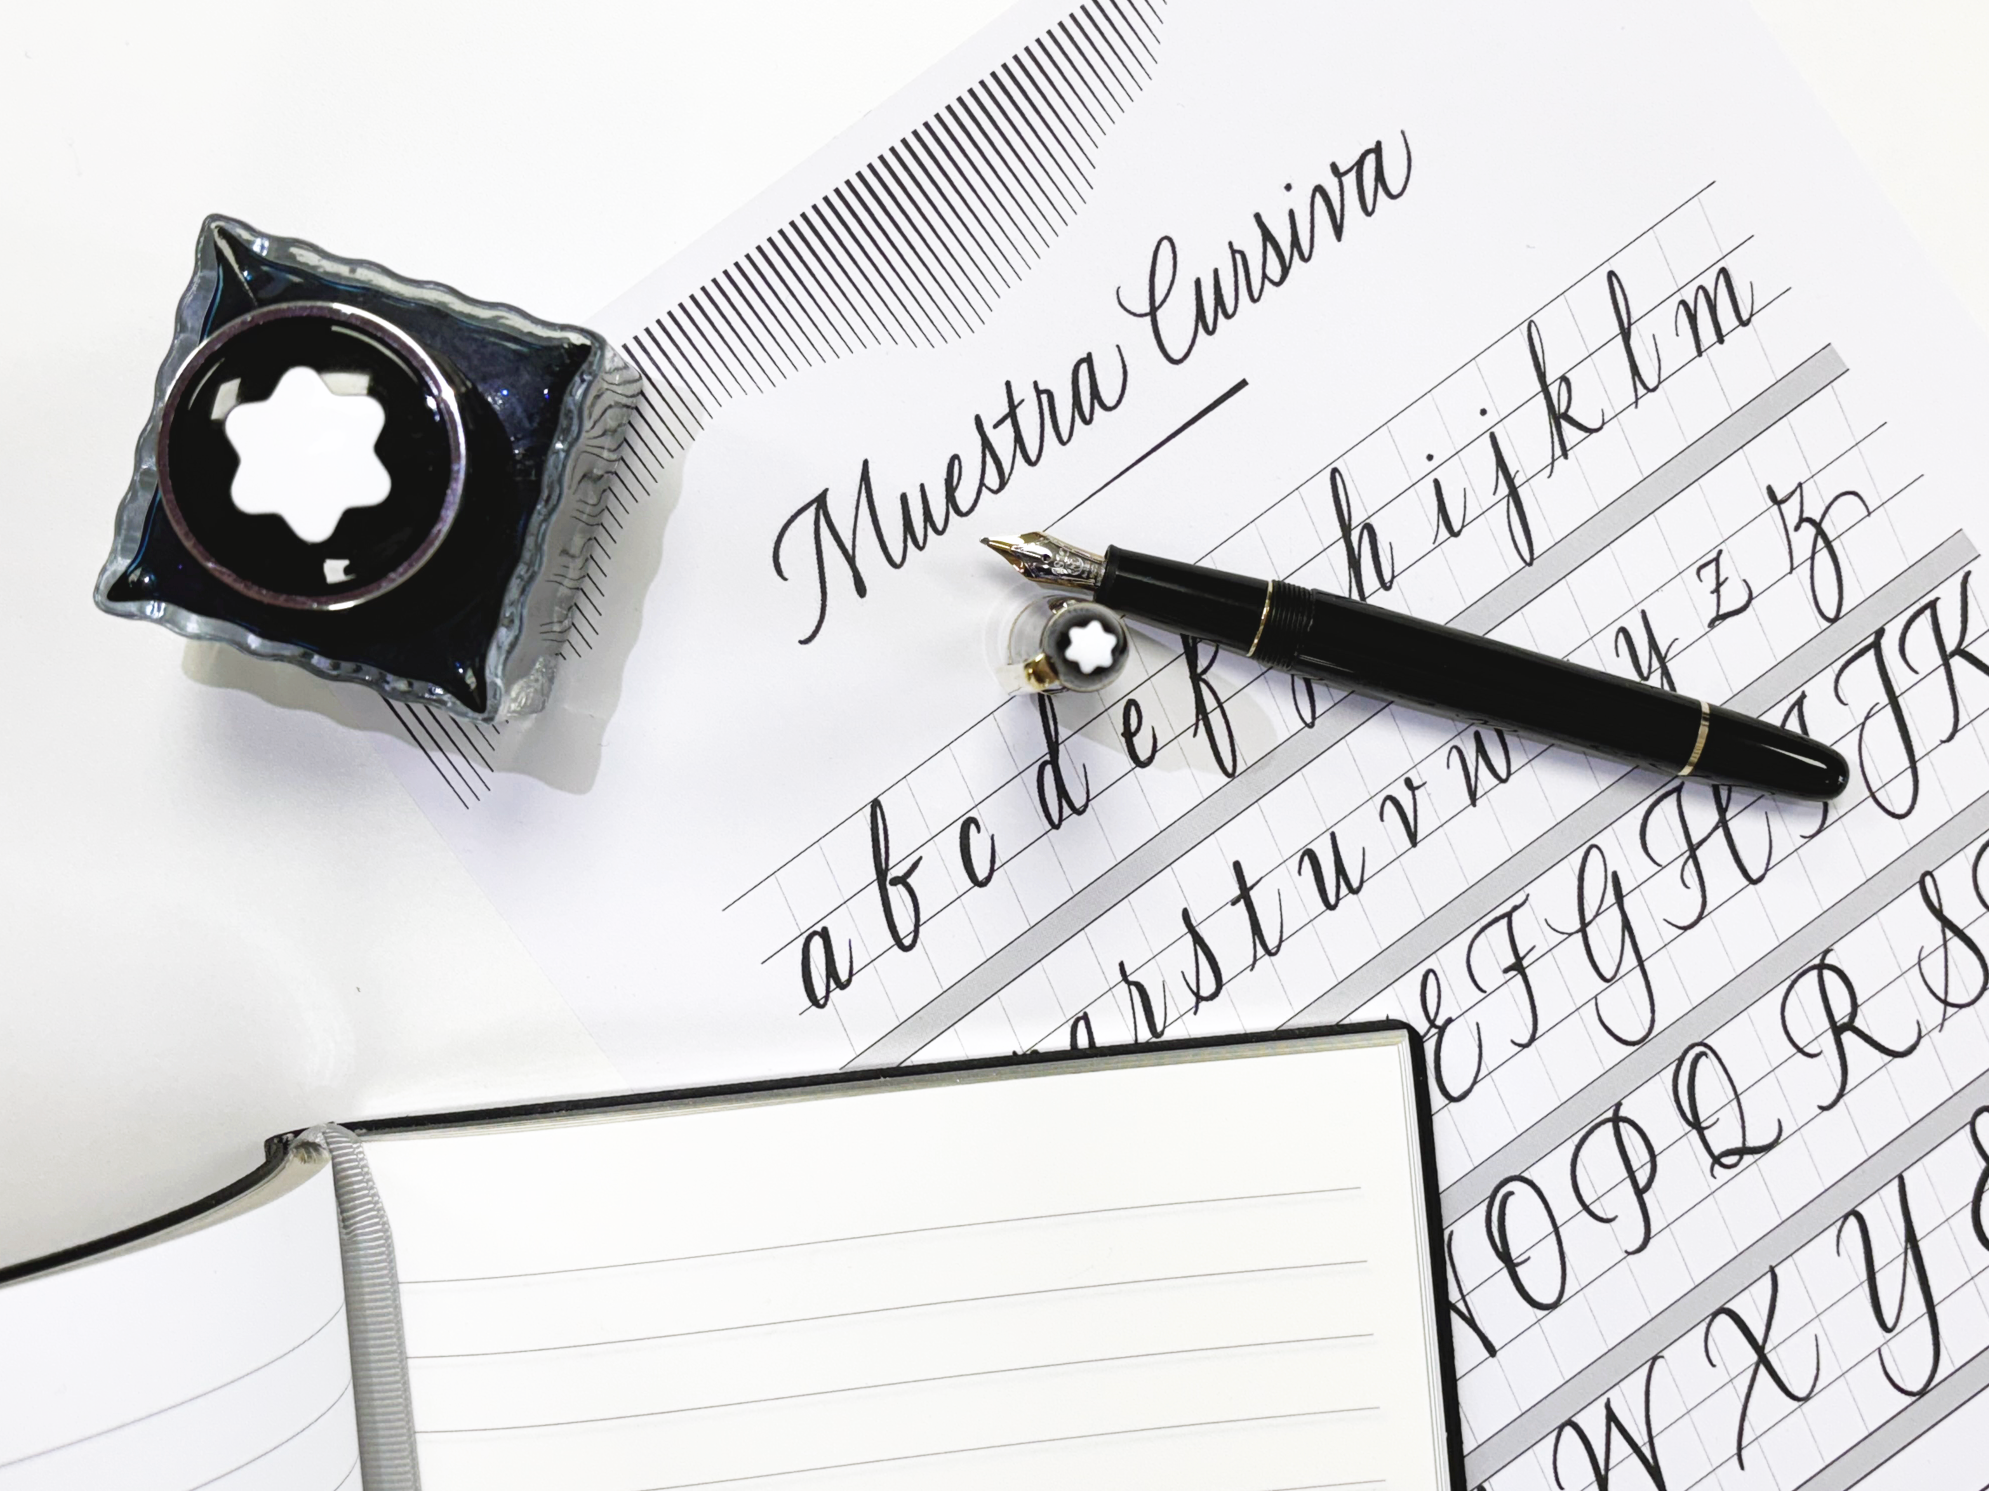 Muestra Cursiva
a b c d e f h i j k l m
r s t u v w y z z
E F G H I J K
O P Q R S
W X Y